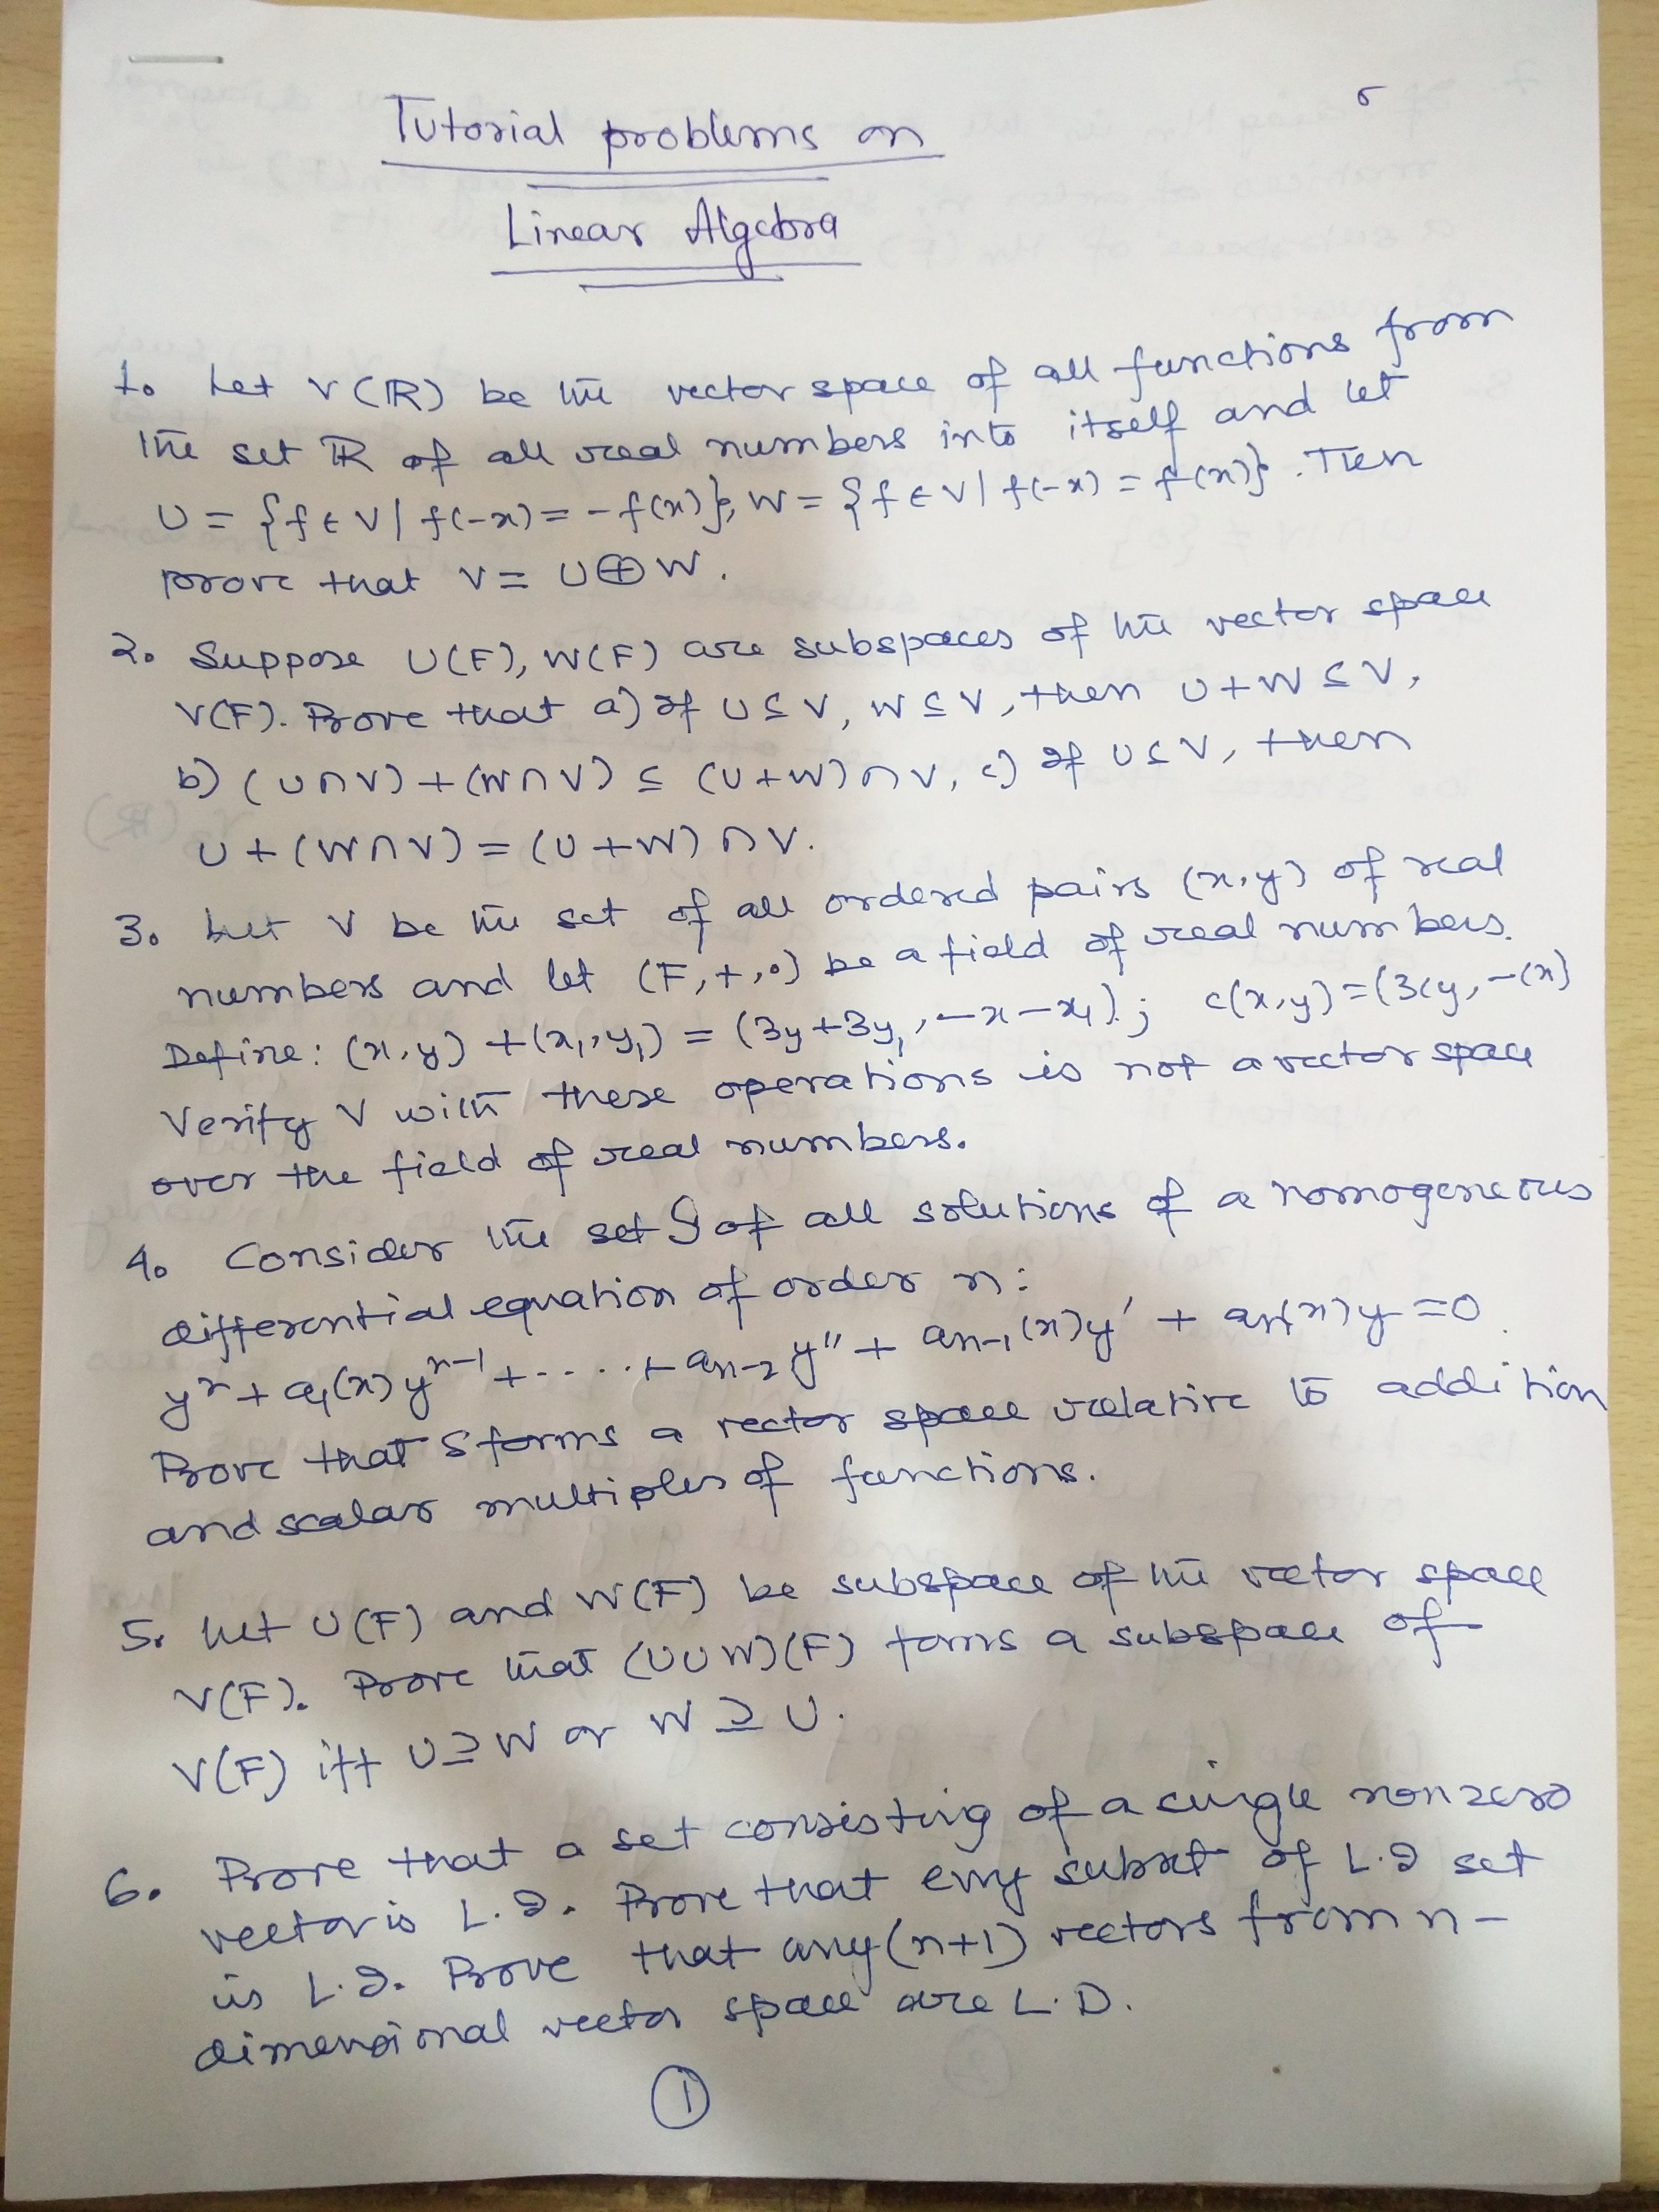 Tutorial problems on
Linear Algebra
1. Let V(R) be the vector space of all functions from
the set R of all real numbers into itself and let
U = {f ∈ V | f(-x) = -f(x)}, W = {f ∈ V | f(-x) = f(x)}. Then
prove that V = U⊕W.
2. Suppose U(F), W(F) are subspaces of the vector space
V(F). Prove that a) If U ⊆ V, W ⊆ V, then U+W ⊆ V,
b) (U∩V)+(W∩V) ⊆ (U+W)∩V, c) If U ⊆ V, then
U+(W∩V) = (U+W)∩V.
3. Let V be the set of all ordered pairs (x,y) of real
numbers and let (F,+,·) be a field of real numbers.
Define: (x,y)+(x₁,y₁) = (3y+3y₁, -x-x₁); c(x,y)=(3cy,-cx)
Verify V with these operations is not a vector space
over the field of real numbers.
4. Consider the set S of all solutions of a homogeneous
differential equation of order n:
yⁿ + a₁(x)yⁿ⁻¹ + ..... + aₙ₋₂ y'' + aₙ₋₁(x)y' + aₙ(x)y = 0.
Prove that S forms a vector space relative to addition
and scalar multiples of functions.
5. Let U(F) and W(F) be subspace of the vector space
V(F). Prove that (U∪W)(F) forms a subspace of
V(F) iff U⊇W or W⊇U.
6. Prove that a set consisting of a single nonzero
vector is L.I. Prove that every subset of L.I set
is L.I. Prove that any (n+1) vectors from n-
dimensional vector space are L.D.
1